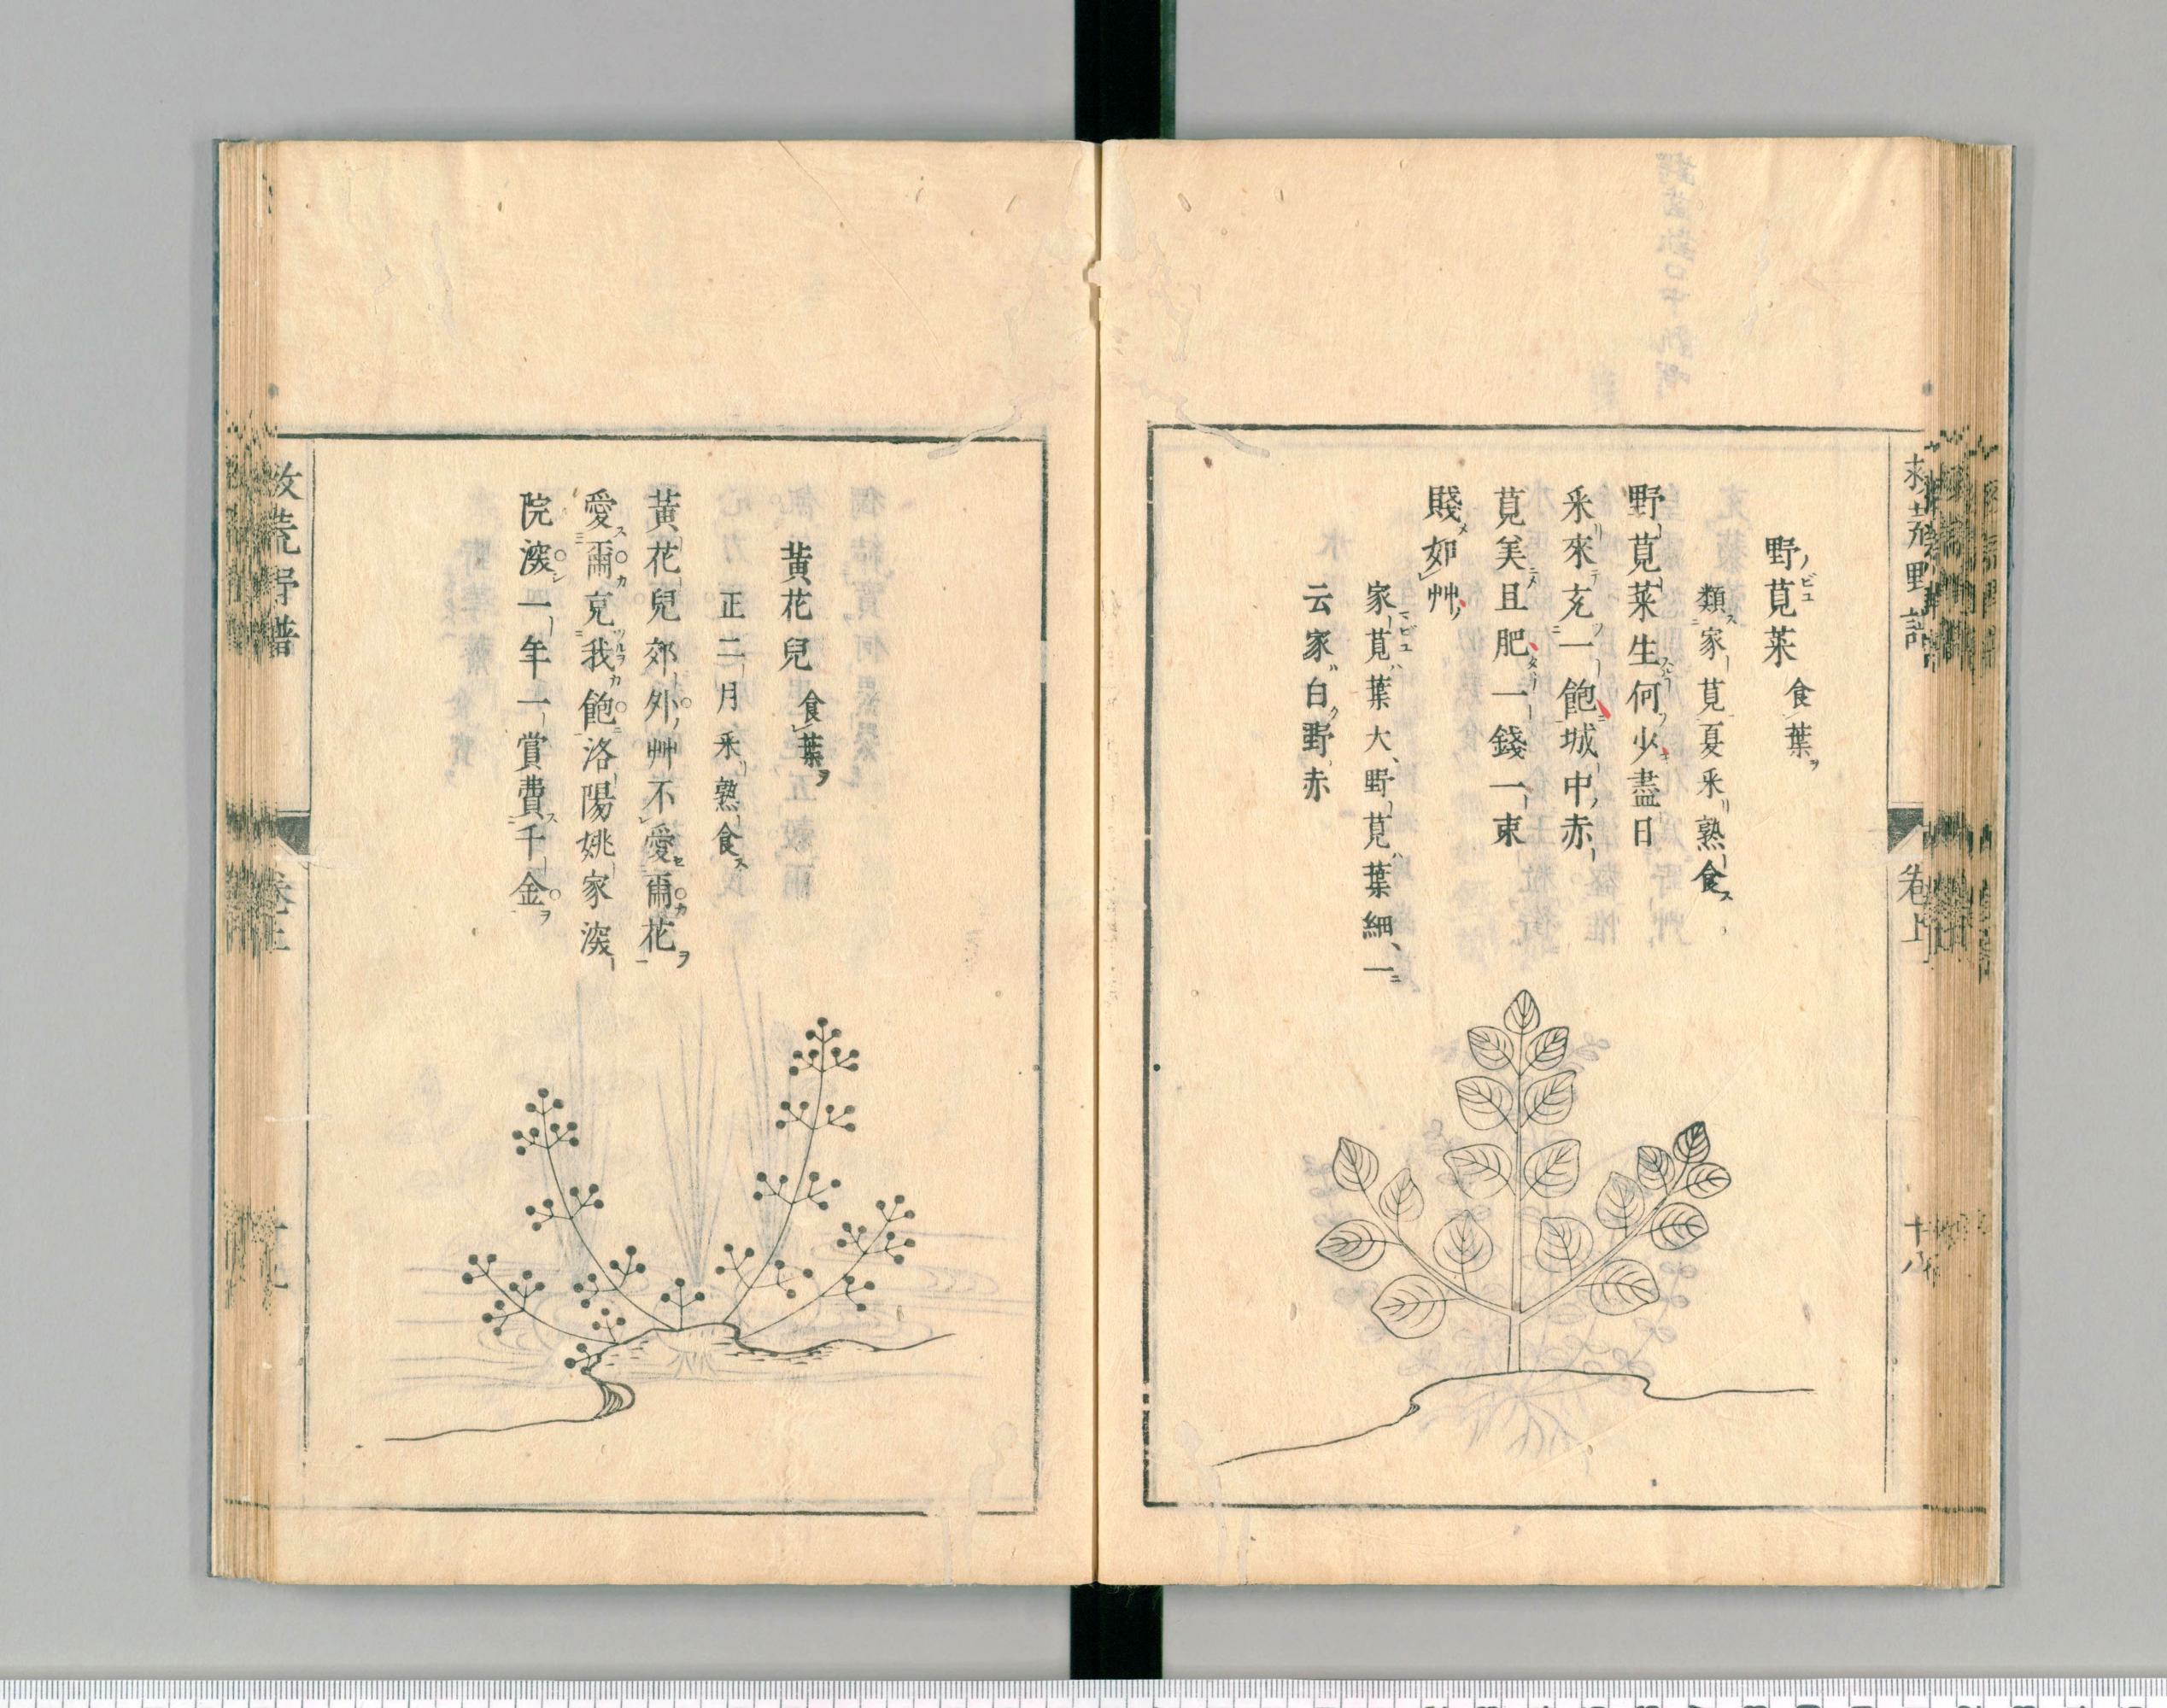 野莧菜 食葉
類家莧夏釆熟食
野莧菜生何少盡日
釆來充一飽城中赤
莧美且肥一錢一束
賤如艸
家莧葉大野莧葉細一
云家白野赤
救荒野譜
卷上
十八
黃花兒 食葉
正二月釆熟食
黃花兒郊外艸不愛爾花
愛爾充我飽洛陽姚家深
院深一年一賞費千金
救荒野譜